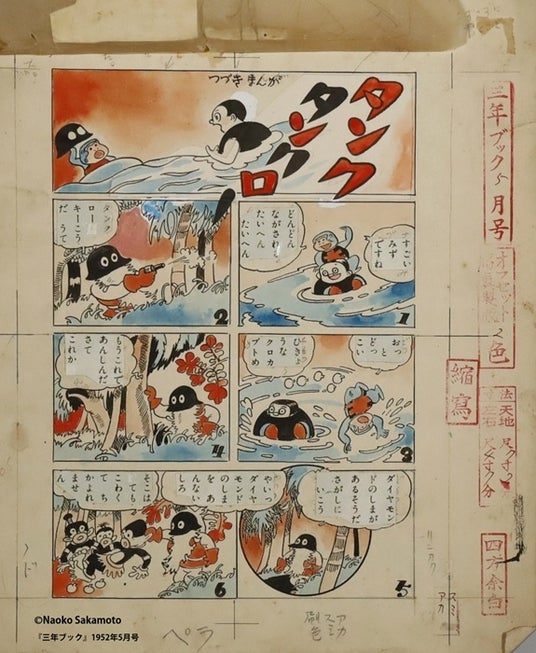 つづきまんが
タンク
タンクロー
すごい
みず
ですね
どんどん
ながされて
たいへん
たいへん
1
タンク
ロー！
キーこう
だ うて
2
おっ
と
どっ
こい
ひきょ
うな
クロカ
ブトめ
3
もうこれで
あんしんだ
さて
これか
4
ダイヤモン
ドのしまが
あるそうだ
さがしに
いこう
5
やいっ
ダイヤ
モンド
のしま
をあ
んない
しろ
そこは
とても
こわく
てち
かよれ
ません
6
三年ブック 月号
オフセット2色
縮寫
法天地
左右
四方余白
スミ
アカ
アカ
スミ
刷色
ペラ
©Naoko Sakamoto
『三年ブック』1952年5月号